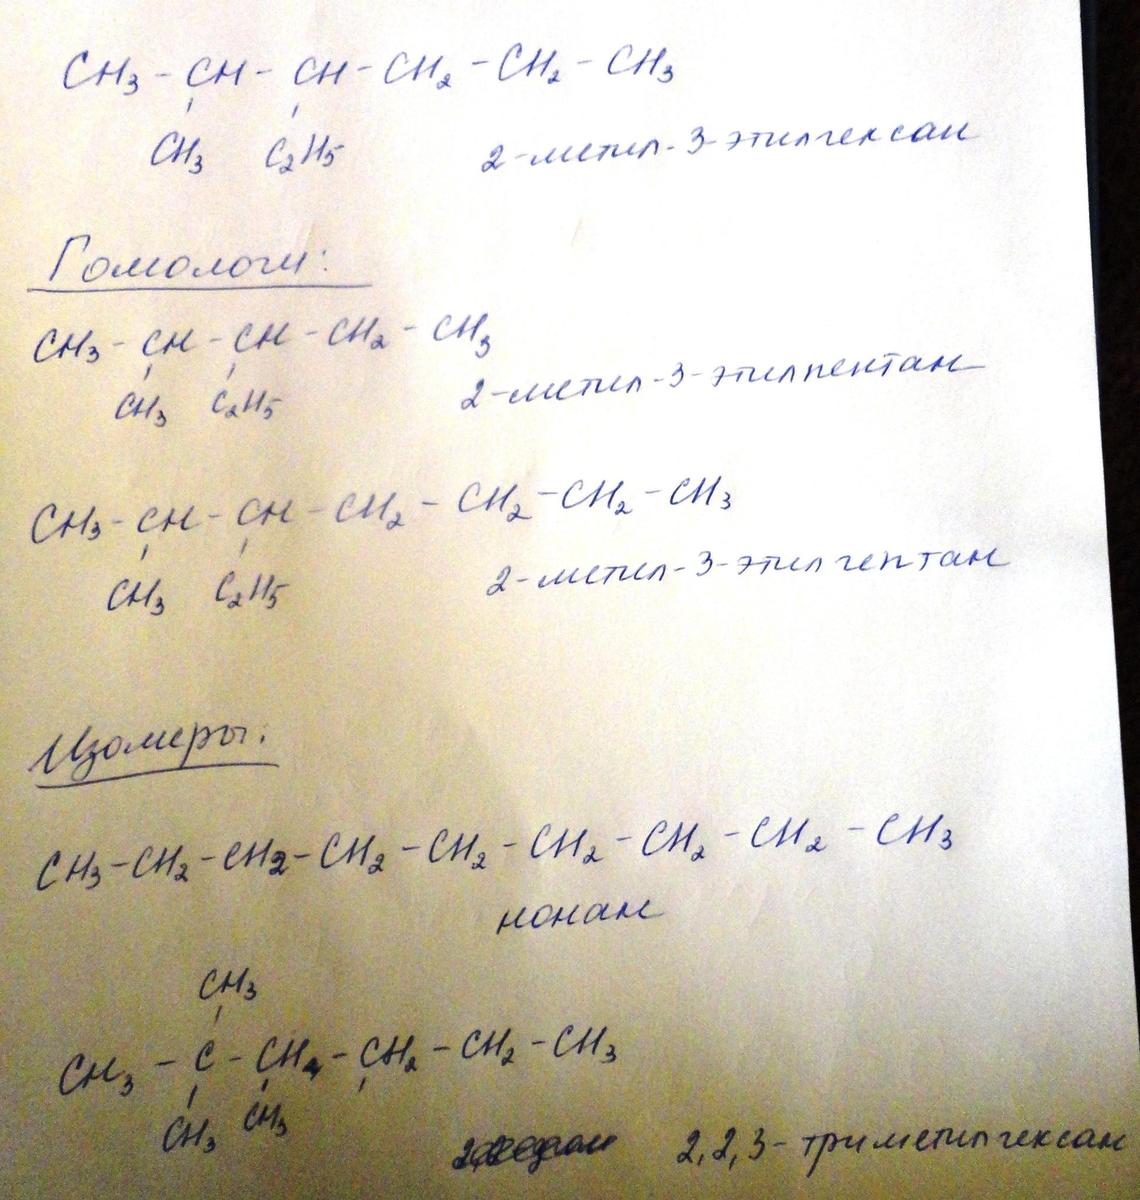 CH₃ - CH - CH - CH₂ - CH₂ - CH₃
CH₃ C₂H₅ 2-метил-3-этилгексан
Гомологи:
CH₃ - CH - CH - CH₂ - CH₃
CH₃ C₂H₅ 2-метил-3-этилпентан
CH₃ - CH - CH - CH₂ - CH₂ - CH₂ - CH₃
CH₃ C₂H₅ 2-метил-3-этилгептан
Изомеры:
CH₃ - CH₂ - CH₂ - CH₂ - CH₂ - CH₂ - CH₂ - CH₂ - CH₃
нонан
CH₃
CH₃ - C - CH - CH₂ - CH₂ - CH₃
CH₃ CH₃
2,2,3-триметилгексан